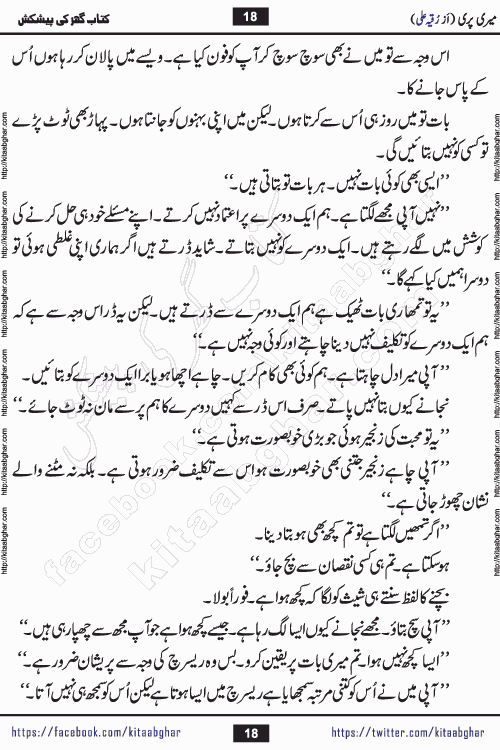 میری پری (از رقیہ علی) 18 کتاب گھر کی پیشکش
اس وجہ سے تو میں نے بھی سوچ سوچ کر آپ کو فون کیا ہے۔ ویسے میں پلان کر رہا ہوں اُس
کے پاس جانے کا۔
بات تو میں روز ہی اُس سے کرتا ہوں۔ لیکن میں اپنی بہنوں کو جانتا ہوں۔ پہاڑ بھی ٹوٹ پڑے
تو کسی کو نہیں بتائیں گی۔
’’ایسی بھی کوئی بات نہیں۔ ہر بات تو بتاتی ہیں۔‘‘
’’نہیں آپی مجھے لگتا ہے۔ ہم ایک دوسرے پر اعتماد نہیں کرتے۔ اپنے مسئلے خود ہی حل کرنے کی
کوشش میں لگے رہتے ہیں۔ ایک دوسرے کو نہیں بتاتے۔ شاید ڈرتے ہیں اگر ہماری اپنی غلطی ہوئی تو
دوسرا ہمیں کیا کہے گا۔‘‘
’’یہ تو تمھاری بات ٹھیک ہے ہم ایک دوسرے سے ڈرتے ہیں۔ لیکن یہ ڈر اس وجہ سے ہے کہ
ہم ایک دوسرے کو تکلیف نہیں دینا چاہتے اور کوئی وجہ نہیں ہے۔‘‘
’’آپی میرا دل چاہتا ہے۔ ہم کوئی بھی کام کریں۔ چاہے اچھا ہو یا برا ایک دوسرے کو بتائیں۔
نجانے کیوں بتا نہیں پاتے۔ صرف اس ڈر سے کہیں دوسرے کا ہم پر سے مان نہ ٹوٹ جائے۔‘‘
’’یہ تو محبت کی زنجیر ہوئی جو بڑی خوبصورت ہوتی ہے۔‘‘
’’آپی چاہے زنجیر جتنی بھی خوبصورت ہو اس سے تکلیف ضرور ہوتی ہے۔ بلکہ نہ مٹنے والے
نشان چھوڑ جاتی ہے۔‘‘
’’اگر تمھیں لگتا ہے تو تم کچھ بھی ہو بتا دینا۔
ہو سکتا ہے۔ تم ہی کسی نقصان سے بچ جاؤ۔‘‘
بچنے کا لفظ سنتے ہی شیث کو لگا کہ کچھ ہوا ہے۔ فوراً بولا۔
’’آپی سچ بتاؤ۔ مجھے نجانے کیوں ایسا لگ رہا ہے۔ جیسے کچھ ہوا ہے جو آپ مجھ سے چھپا رہی ہیں۔‘‘
’’ایسا کچھ نہیں ہوا۔ تم میری بات پر یقین کرو۔ بس وہ ریسرچ کی وجہ سے پریشان ضرور ہے۔‘‘
’’آپی میں نے اُس کو کتنی مرتبہ سمجھایا ہے ریسرچ میں ایسا ہوتا ہے لیکن اُس کو سمجھ ہی نہیں آتا۔‘‘
https://facebook.com/kitaabghar 18 https://twitter.com/kitaabghar
http://kitaabghar.com
http://kitaabghar.com
http://kitaabghar.com
http://kitaabghar.com
http://kitaabghar.com
http://kitaabghar.com
http://kitaabghar.com
http://kitaabghar.com
http://kitaabghar.com
http://kitaabghar.com
http://kitaabghar.com
http://kitaabghar.com
کتاب گھر کی پیشکش
kitaabghar.com
facebook.com/kitaabghar